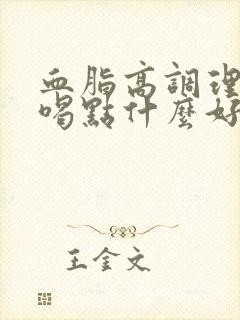 血脂高調理
喝點什麼好
王金文